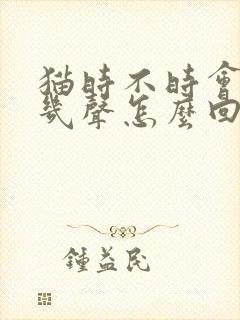 猫時不時會
幾聲怎麼回
鍾益民